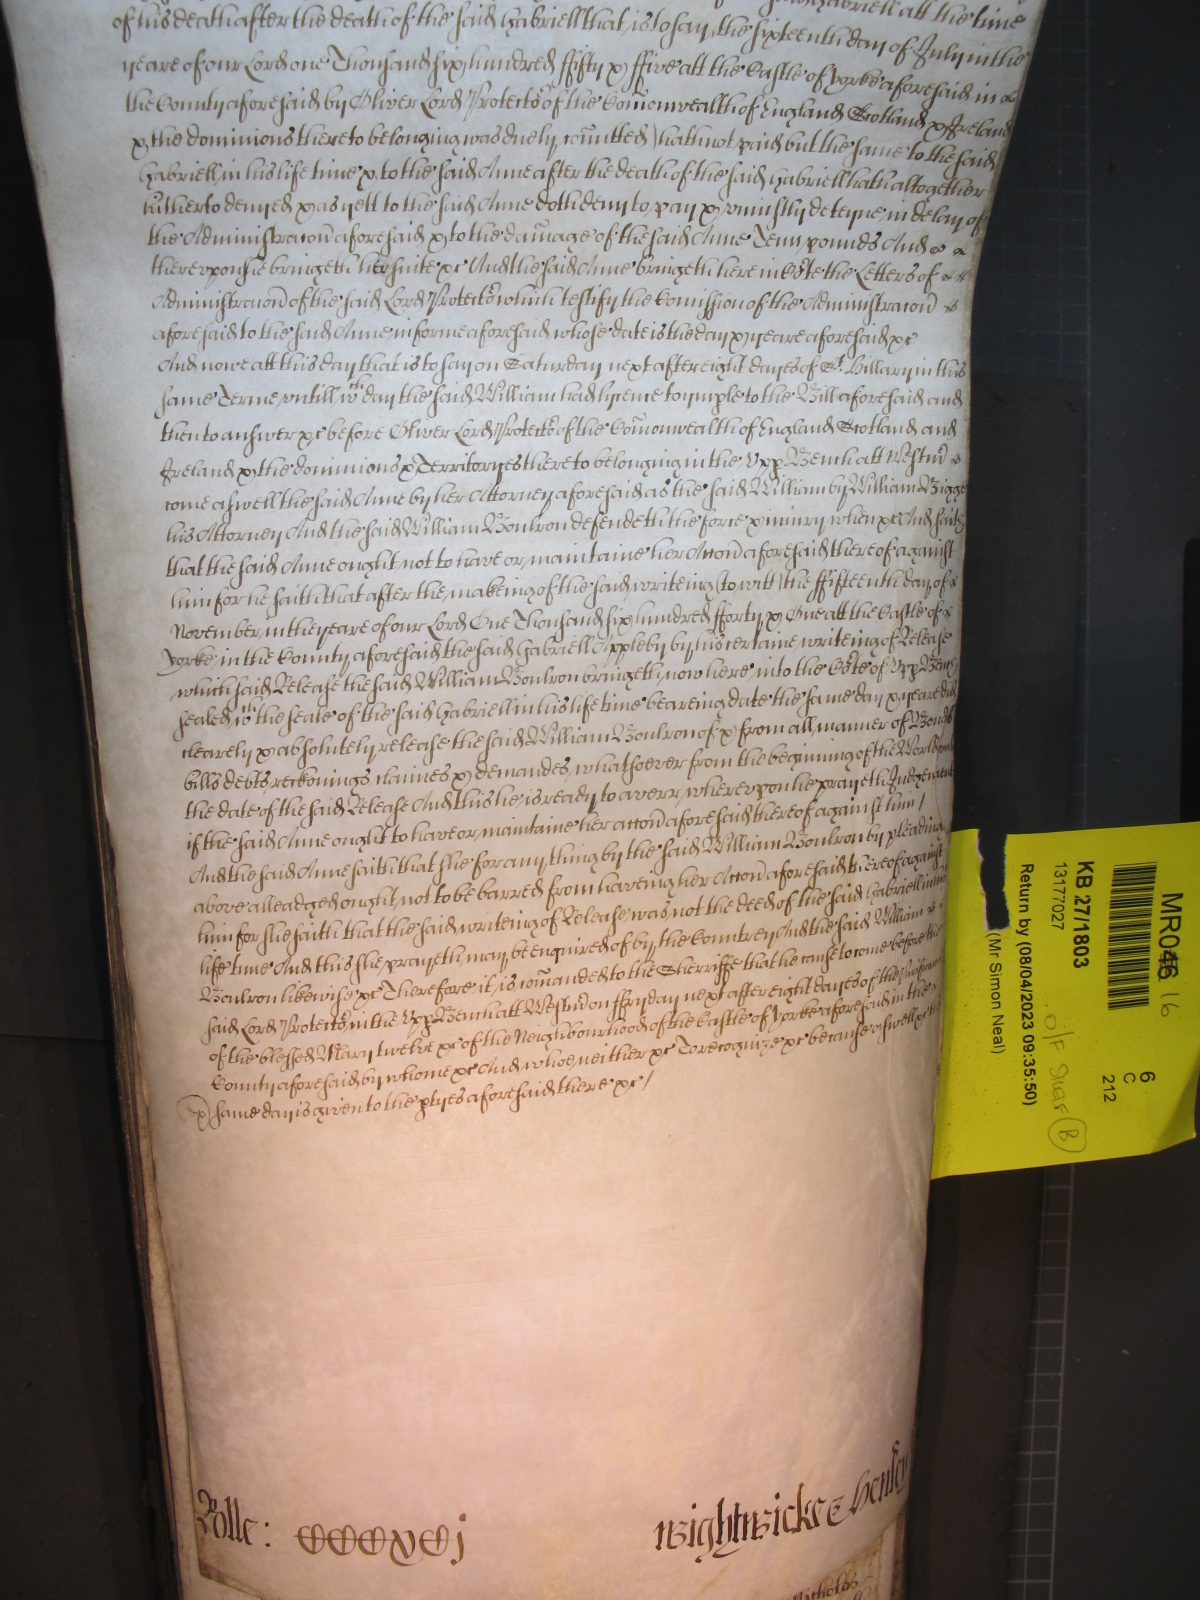 said Gabriell att the time
of his death after the death of the said Gabriell that is to say the sixteenth day of July in the
yeare of our Lord one Thousand six hundred fifty & ffive att the Castle of yorke aforesaid in
the County aforesaid by Oliver Lord Protector of the Comonwealth of England Scotland & Ireland
& the dominions thereto belonging was duely comitted) hath not paid but the same to the said
Gabriell in his life time & to the said Anne after the death of the said Gabriell hath altogether
hitherto denyed & as yett to the said Anne doth deny to pay & uniustly deteyne in delay of
the Administracon aforesaid & to the damage of the said Anne Tenn pounds And
thereupon she bringeth her suite &c And the said Anne bringeth here in Cote the Letters of
Administracon of the said Lord Protector which testify the Comission of the Administracon
aforesaid to the said Anne in forme aforesaid whose date is the day & yeare aforesaid &c
And nowe att this day that is to say on Saturday next after eight dayes of St. Hillary in this
same Terme untill wch day the said William had lycence to imple to the Bill aforesaid and
then to answer &c before Oliver Lord Protector of the Comonwealth of England Scotland and
Ireland & the dominions & Territoryes thereto belonging in the Upp Bench att Westmr
come aswell the said Anne by her Attorney aforesaid as the said William by William Bigge
his Attorney And the said William Boulron defendeth the force & iniury when &c And saith
that the said Anne ought not to have or maintaine her Accon aforesaid thereof against
him for he saith that after the makeing of the said writeing (to witt) the ffifteenth day of
November in the yeare of our Lord One Thousand six hundred fforty & One att the Castle of
yorke in the County aforesaid the said Gabriell Appleby by his certaine writeing of Release
which said Release the said William Boulron bringeth now here into the Cote of Upp Bench
sealed wth the seale of the said Gabriell in his life time beareing date the same day & yeare did
clearely & absolutely release the said William Boulron of & from all manner of Bonds
bills debts reckonings claimes & demandes whatsoever from the beginning of the World untill
the date of the said Release And this he is ready to averr whereupon he prayeth Judgement
if the said Anne ought to have or maintaine her accon aforesaid thereof against him /
And the said Anne saith that she for any thing by the said William Boulron by pleading
above alleadged ought not to be barred from haveing her Accon aforesaid thereof against
him for she saith that the said writeing of Release was not the deed of the said Gabriell in his
life time And this she prayeth may be enquired of by the Countrey And the said William
Boulron likewise &c Therefore it is comanded to the Sherriffe that he cause to come before the
said Lord Protector in the Upp Bench att Westmr on ffryday next after eight dayes of the Purificacon
of the blessed Mary twelve &c of the Neighbourhood of the Castle of yorke aforesaid in the
County aforesaid by whome &c And who neither &c To recognize &c because aswell &c The
same day is given to the ptyes aforesaid there &c /
Rolle: CCCCxvj
Wightwicke & Henley
MR016
KB 27/1803
13177027
Return by (08/04/2023 09:35:50)
(Mr Simon Neal)
6
C
212
O/F Shelf B